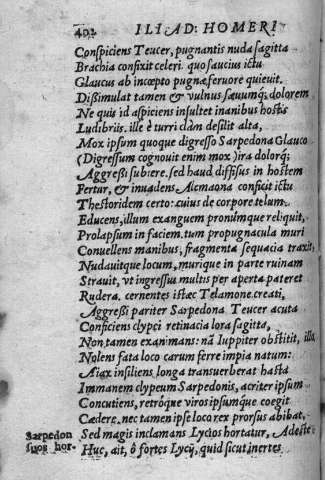 402 ILIAD: HOMERI
Conspiciens Teucer, pugnantis nuda sagitta
Brachia confixit celeri. quo saucius ictu
Glaucus ab incœpto pugnæ feruore quieuit.
Dißimulat tamen & vulnus sæuumq; dolorem
Ne quis id aspiciens insultet inanibus hostis
Ludibriis. ille è turri clàm desilit alta,
Mox ipsum quoque digresso Sarpedona Glauco
(Digressum cognouit enim mox) ira dolorq;
Aggreßi subiere, sed haud diffisus in hostem
Fertur, & inuadens Alcmaona conficit ictu
Thestoridem certo: cuius de corpore telum
Educens, illum exanguem pronumque reliquit,
Prolapsum in faciem. tum propugnacula muri
Conuellens manibus, fragmenta sequacia traxit,
Nudauitque locum, murique in parte ruinam
Strauit, vt ingressus multis per aperta pateret
Rudera. cernentes istæc Telamone creati,
Aggreßi pariter Sarpedona Teucer acuta
Conficiens clypei retinacla lora sagitta,
Non tamen exanimans: nã Iuppiter obstitit, illũ
Nolens fata loco carum ferre impia natum:
Aiax insiliens longa transuerberat hasta
Immanem clypeum Sarpedonis, acriter ipsum
Concutiens, retròque viros ipsumque coegit
Cædere. nec tamen ipse loco rex prorsus abibat,
Sarpedon suos hor.
Sed magis inclamans Lycios hortatur, Adeste
Huc, ait, ô fortes Lycij, quid sicut inertes